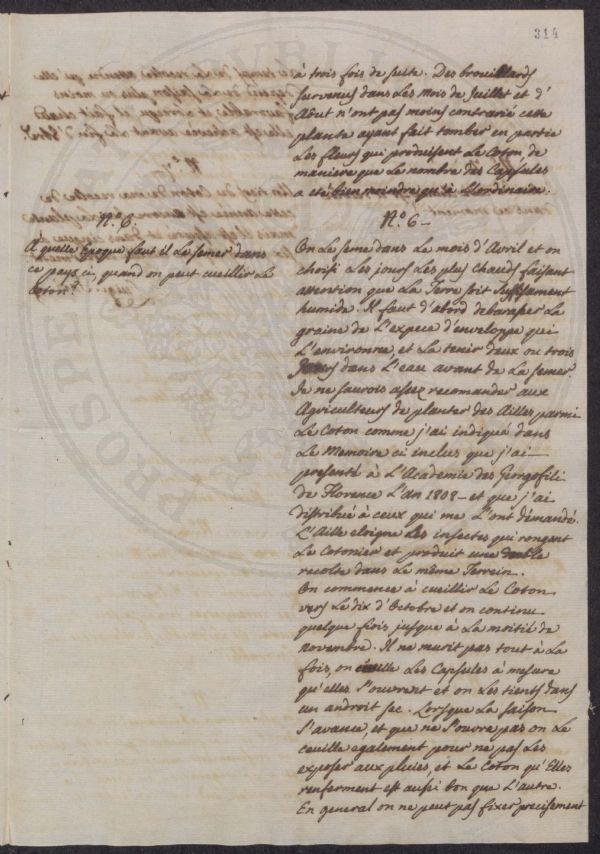 314
à trois fois de suite. Des brouillards
survenus dans les mois de Juillet et d'
Aôut n'ont pas moins contrarié cette
plante ayant fait tomber en partie
les fleurs qui produisent le Coton, de
maniere que le nombre des Capsules
a eté bien moindre qu'à L'ordinaire.
N.º 6.
A quelle Epoque faut il le semer dans
ce pays ci, quand on peut cueillir le
Coton?
N.º 6 —
On le seme dans le mois d'Avril et on
choisi les jours les plus chauds faisant
attention que la Terre soit suffisament
humide. Il faut d'abord debaraser la
graine de L'espece d'enveloppe qui
L'environne, et la tenir deux ou trois
Jours dans L'eau avant de la semer
Je ne saurois assez recomander aux
Agriculteurs de planter des Ailles parmi
le Coton comme j'ai indiqué dans
le Memoire ci inclus que j'ai
presenté à L'Academie des Georgofili
de Florence L'an 1808 — et que j'ai
distribué à ceux qui me L'ont demandé.
L'Aille eloigne les insectes qui rongent
le Cotonier et produit une double
recolte dans le même Terrein.
On commence à cueillir le Coton
vers le dix d'Octobre et on continu
quelque fiois jusque à la moitié de
novembre. Il ne murit pas tout à la
fois, on cueille les Capsules à mesure
qu'elles s'ouvrent et on les tients dans
un androit sec. Lorsque la saison
s'avance, et que ne s'ouvre pas on le
ceuille egalement pour ne pas les
exposer aux pluies, et le Coton qu'Elles
renferment est aussi bon que L'autre.
En general on ne peut pas fixer precisement